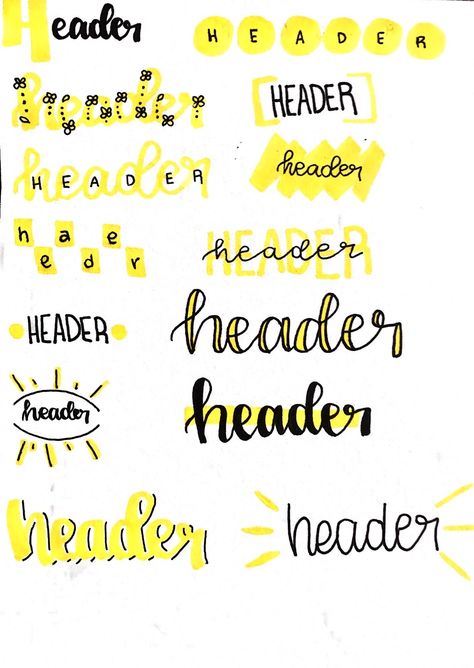 Header
HEADER
header
HEADER
header
HEADER
header
header
HEADER
header
HEADER
header
header
header
header
header